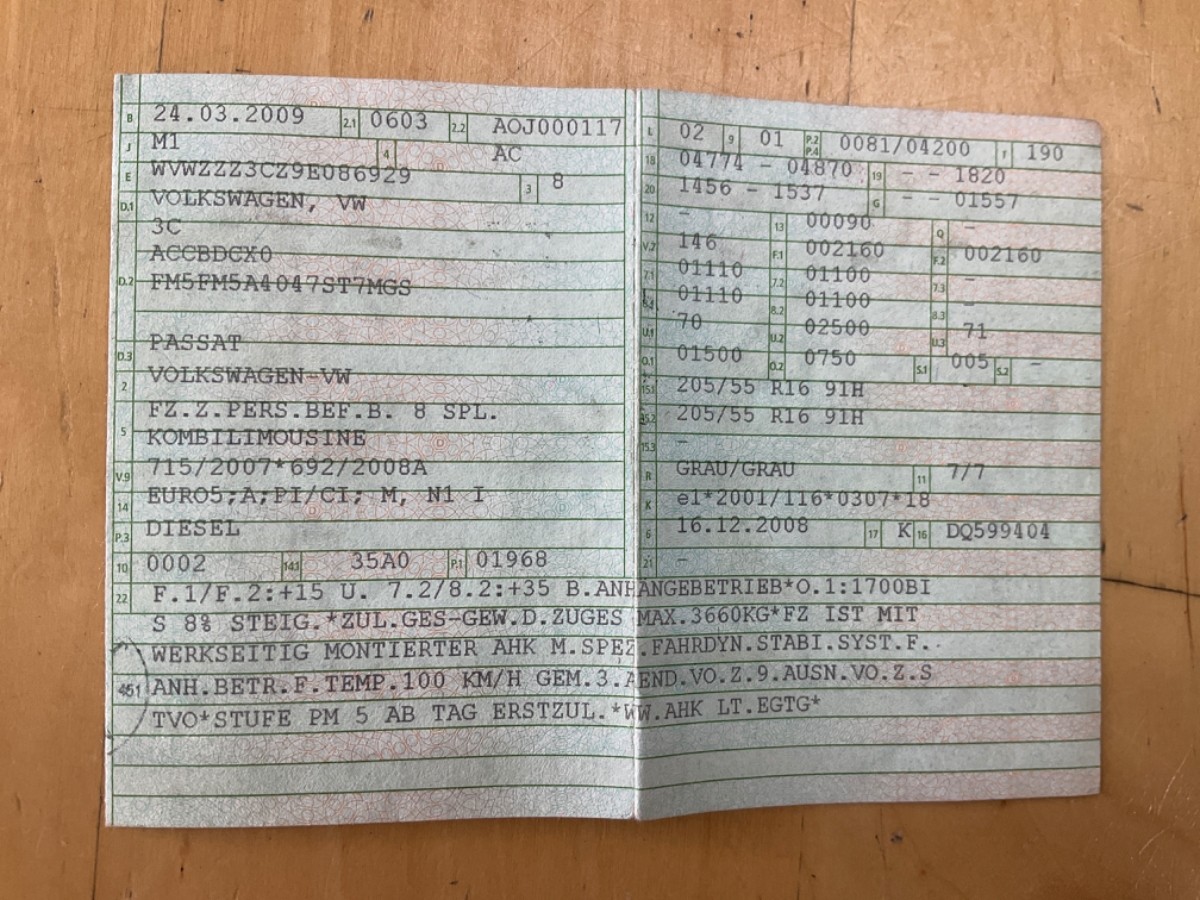 B 24.03.2009 2.1 0603 2.2 AOJ000117
J M1 4 AC
E WVWZZZ3CZ9E086929 3 8
D.1 VOLKSWAGEN, VW
3C
ACCBDCX0
D.2 FM5FM5A4047ST7MGS
PASSAT
D.3
2 VOLKSWAGEN-VW
FZ.Z.PERS.BEF.B. 8 SPL.
5 KOMBILIMOUSINE
V.9 715/2007*692/2008A
14 EURO5;A;PI/CI; M, N1 I
P.3 DIESEL
10 0002 14.1 35A0 P.1 01968
L 02 9 01 P.2 P.4 0081/04200 T 190
18 04774 - 04870 19 - - 1820
20 1456 - 1537 G - - 01557
12 - 13 00090 Q -
V.7 146 F.1 002160 F.2 002160
7.1 01110 7.2 01100 7.3 -
8.1 01110 8.2 01100 8.3 -
U.1 70 U.2 02500 U.3 71
O.1 01500 O.2 0750 S.1 005 S.2 -
15.1 205/55 R16 91H
15.2 205/55 R16 91H
15.3 -
R GRAU/GRAU 11 7/7
K e1*2001/116*0307*18
6 16.12.2008 17 K 16 DQ599404
21 -
22 F.1/F.2:+15 U. 7.2/8.2:+35 B.ANHÄNGEBETRIEB*O.1:1700BI
S 8% STEIG.*ZUL.GES-GEW.D.ZUGES MAX.3660KG*FZ IST MIT
WERKSEITIG MONTIERTER AHK M.SPEZ.FAHRDYN.STABI.SYST.F.
451 ANH.BETR.F.TEMP.100 KM/H GEM.3.AEND.VO.Z.9.AUSN.VO.Z.S
TVO*STUFE PM 5 AB TAG ERSTZUL.*WW.AHK LT.EGTG*